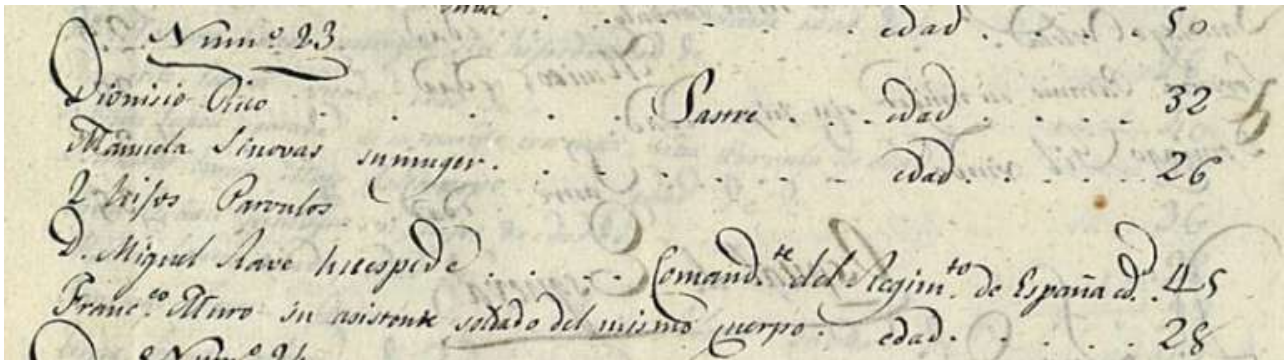 edad . . . . 50
Num.º 23
Dionisio Rico . . . . . Sastre . . . edad . . . . . . 32
Manuela Sinovas su muger . . . . . . . . edad . . . . . . 26
2 hijos Parvulos
D. Miguel huespede . . . . . Comand.te del Regim.to de España ed. 45
Franc.co Muro su asistente soldado del mismo cuerpo . edad . . . . 28
Num.º 24